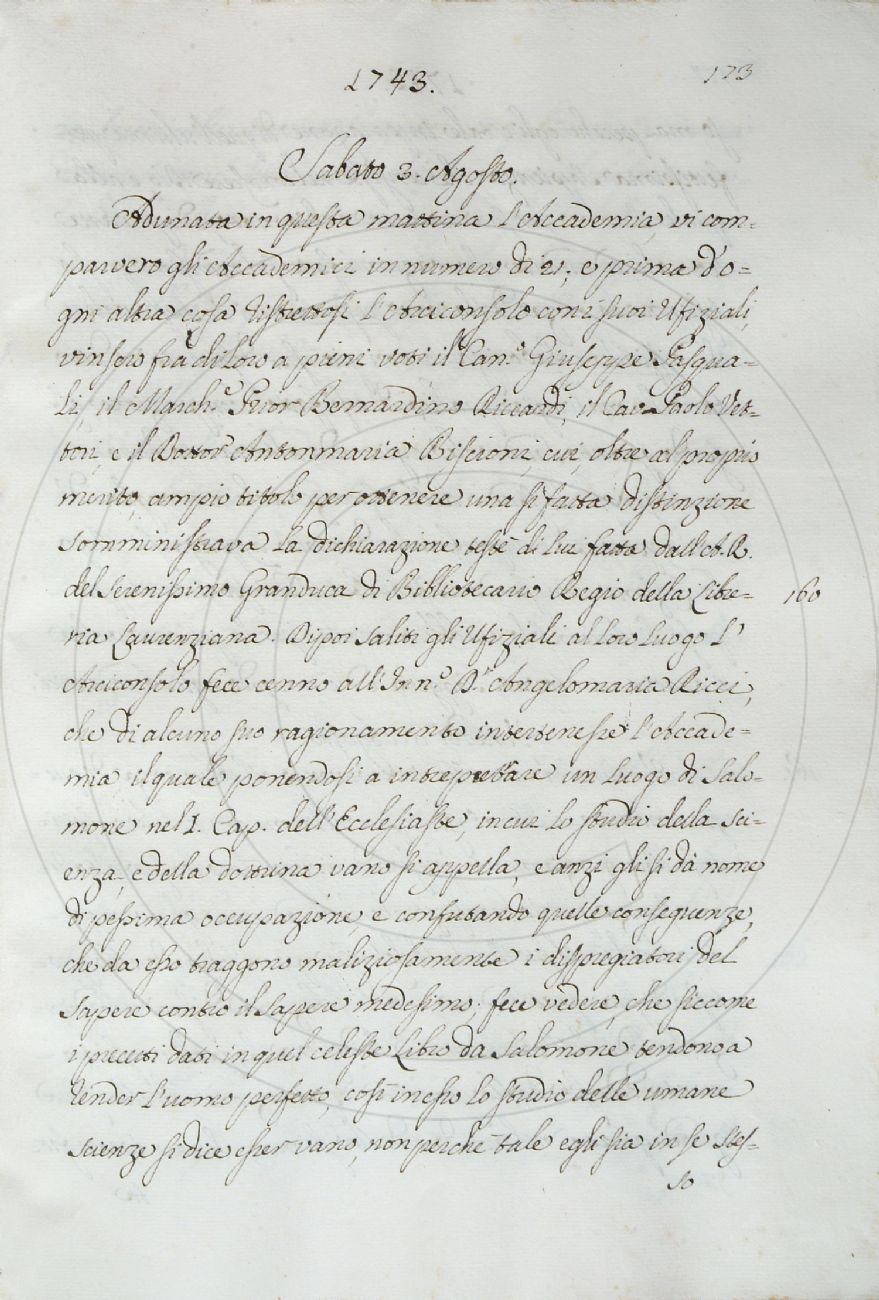 1743.
173
Sabato 3. Agosto.
Adunata in questa mattina l'Accademia, vi com=
parvero gli Accademici in numero di 21; e prima d'o=
gni altra cosa ristrettosi l'Arciconsolo con i suoi Ufiziali,
vinsero fra di loro a pieni voti il Can.º Giuseppe Pasqua=
li, il March.e Prior Bernardino Riccardi, il Cav. Paolo Vet=
tori, e il Dottor Antonmaria Biscioni, cui, oltre al proprio
merito, ampio titolo per ottenere una sì fatta distinzione
somministrava la dichiarazione testè di lui fatta dall'A.R.
del Serenissimo Granduca di Bibliotecario Regio della Libre=
160
ria Laurenziana. Dipoi saliti gli Ufiziali al loro luogo l'
Arciconsolo fece cenno all'Inn.º D.r Angelomaria Ricci,
che di alcuno suo ragionamento intertenesse l'Accade=
mia il quale ponendosi a intrepretare un luogo di Salo=
mone nel I. Cap. dell'Ecclesiaste, in cui lo studio della sci=
enza, e della dottrina vano si appella, e anzi gli si dà nome
di pessima occupazione, e confutando quelle conseguenze,
che da esso traggono maliziosamente i dispregiatori del
sapere contro il sapere medesimo; fece vedere, che siccome
i precetti dati in quel celeste Libro da Salomone tendono a
render l'uomo perfetto, così in esso lo studio delle umane
scienze si dice esser vano, non perchè tale egli sia in se stes=
so